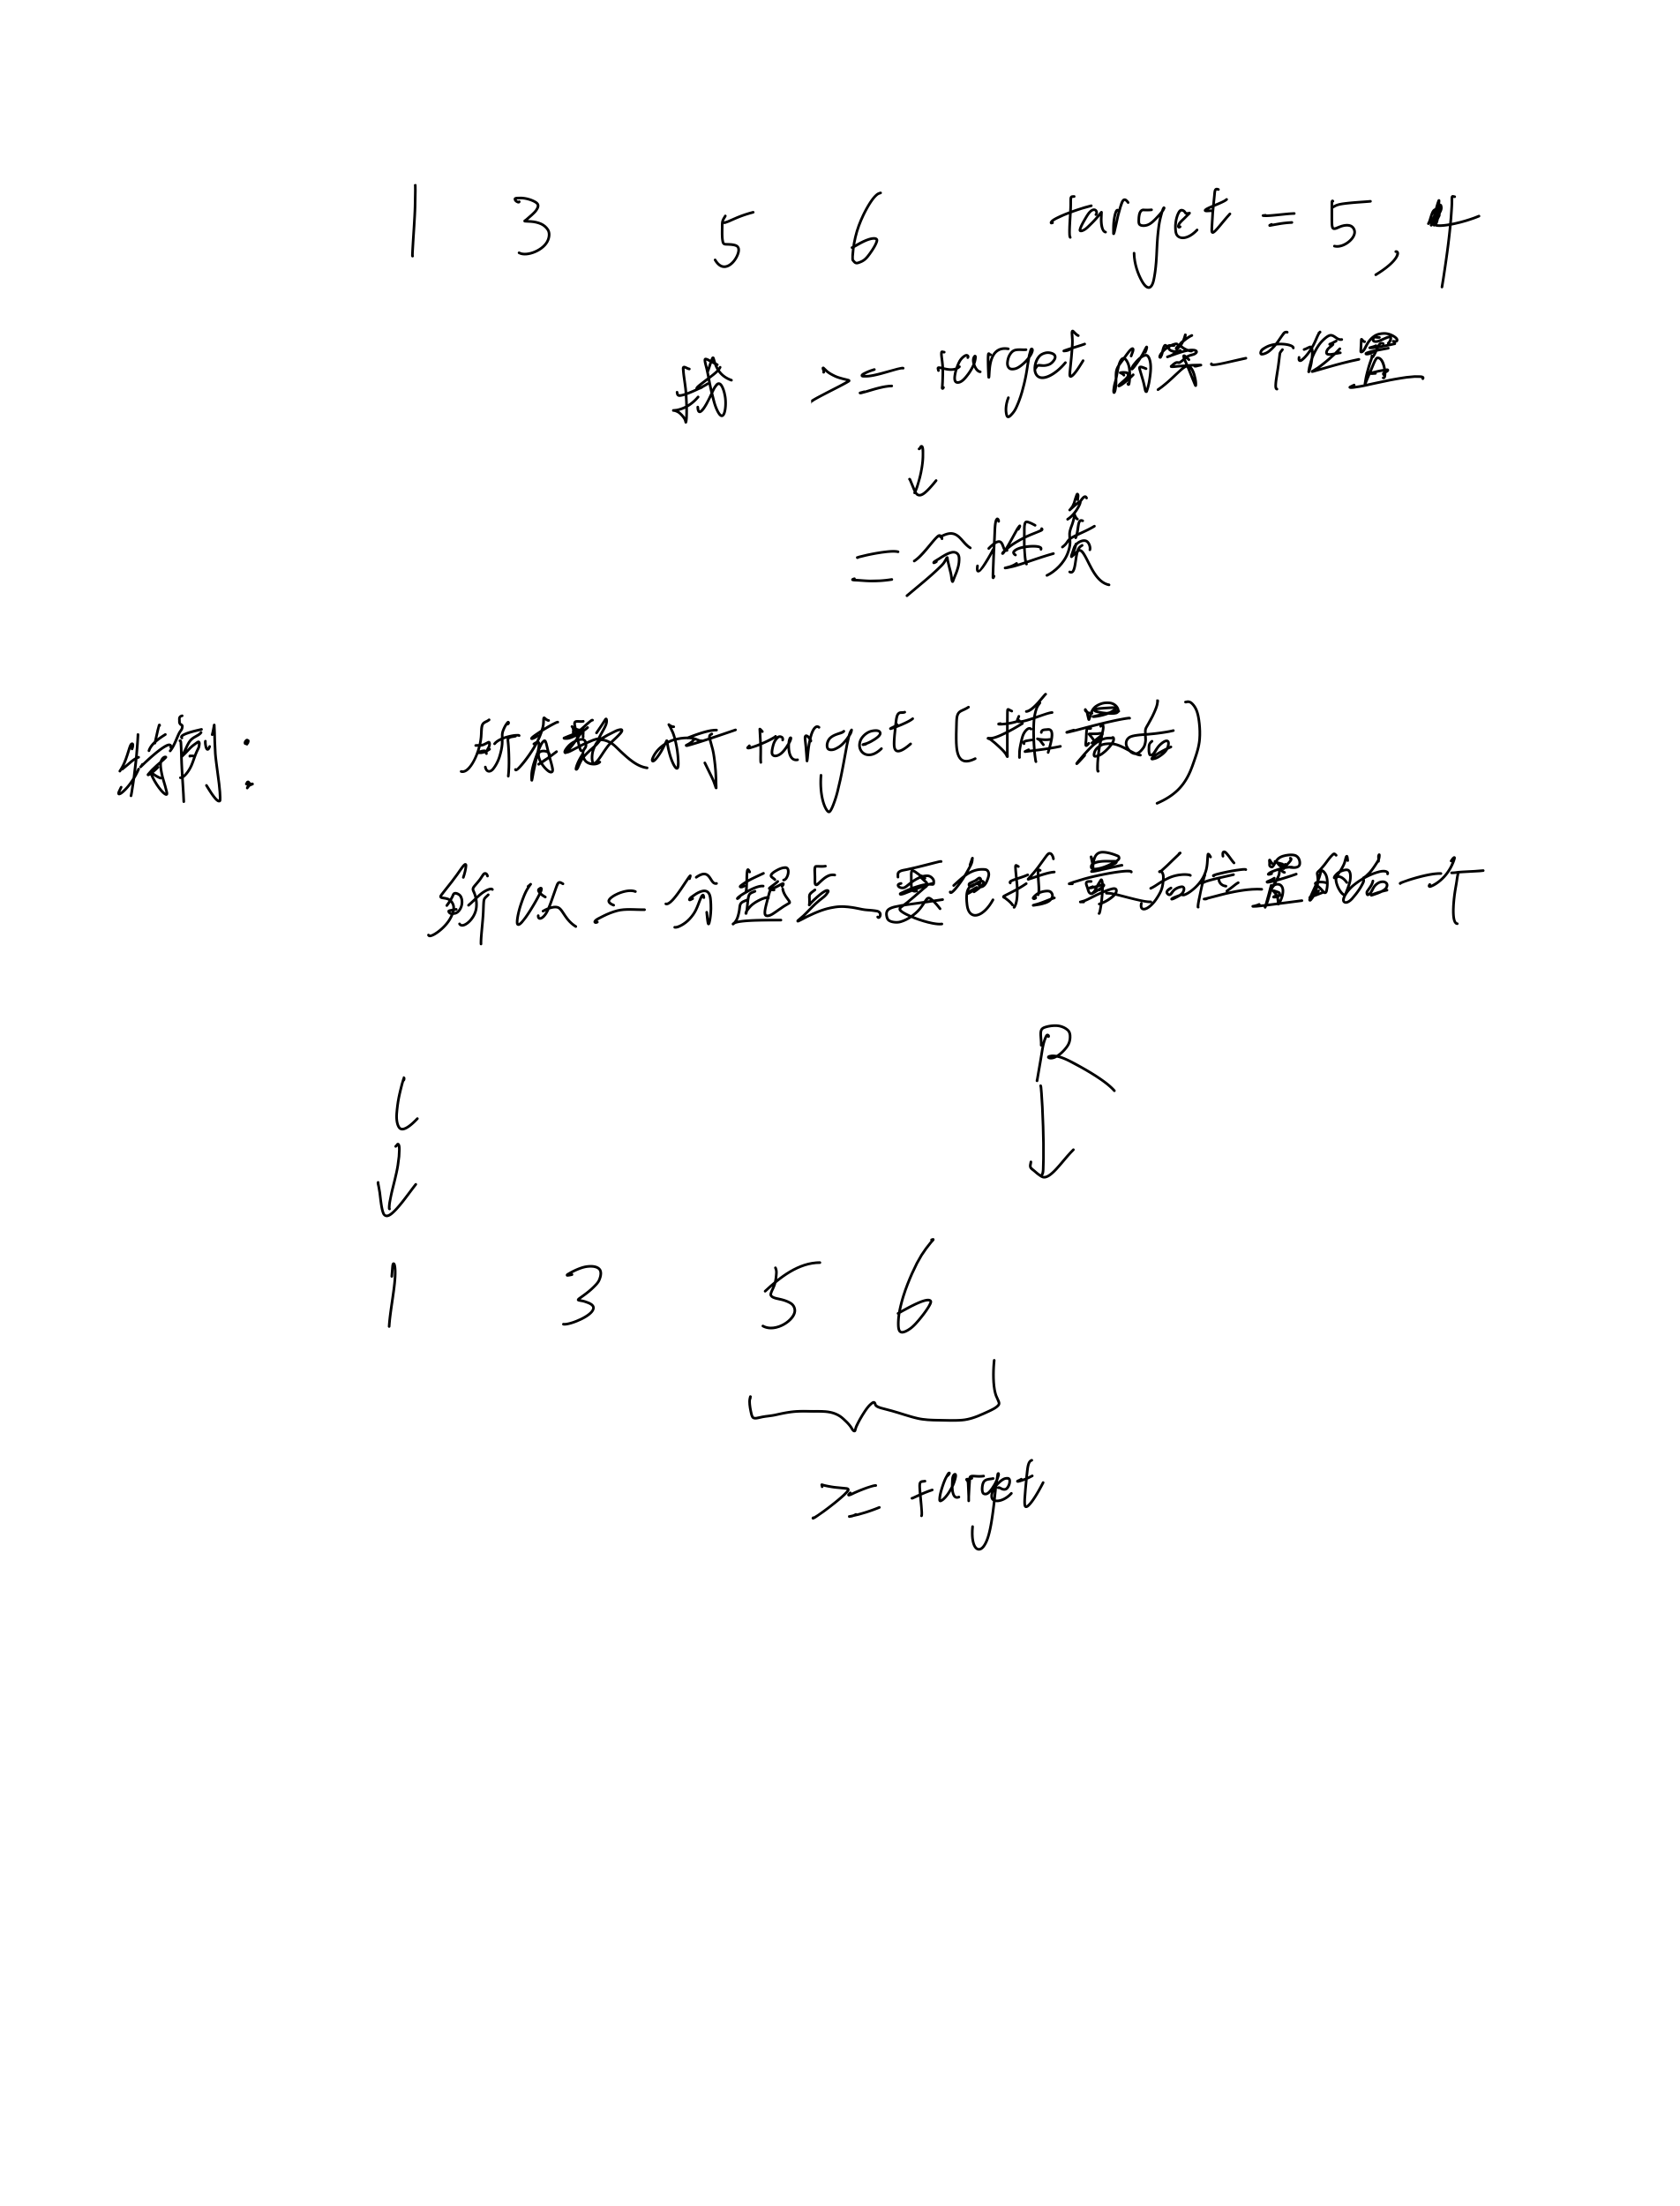 1 3 5 6 target = 5, 4
找 >= target 的第一个位置
↓
二分性质
特例: 所有数小于target (插最后)
所以二分起点要包括最后位置的后一个
L R
↓ ↓
1 3 5 6
>= target